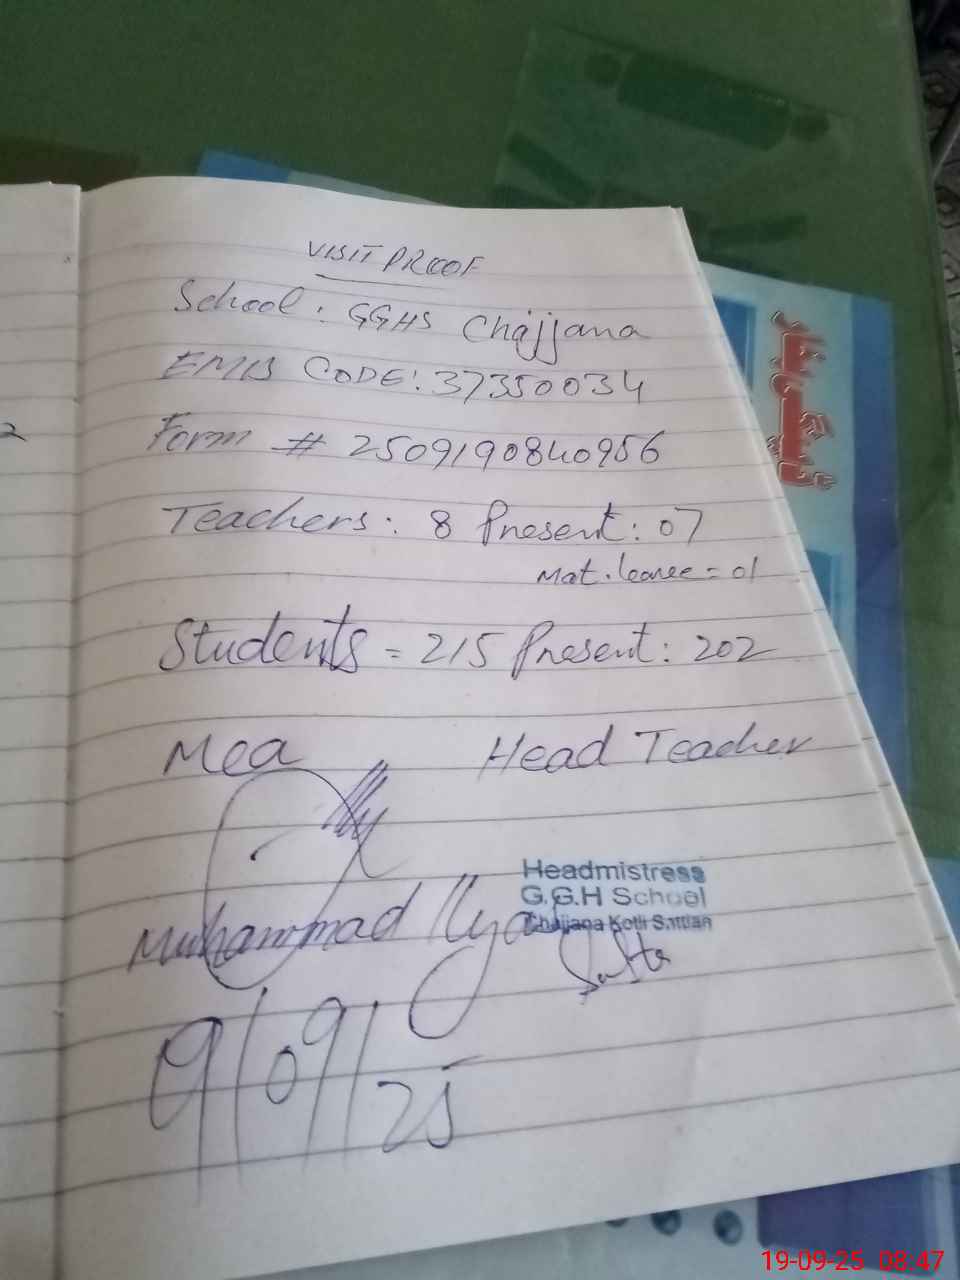 VISIT PROOF
School: GGHS Chajjana
EMIS CODE: 37350034
Form # 2509190840956
Teachers: 8 Present: 07
Mat. leave = 01
Students = 215 Present: 202
Mea Head Teacher
Headmistress
G.G.H School
Chajjana Kotli Sattian
Muhammad Ilyas
9/09/25
2
19-09-25 08:47